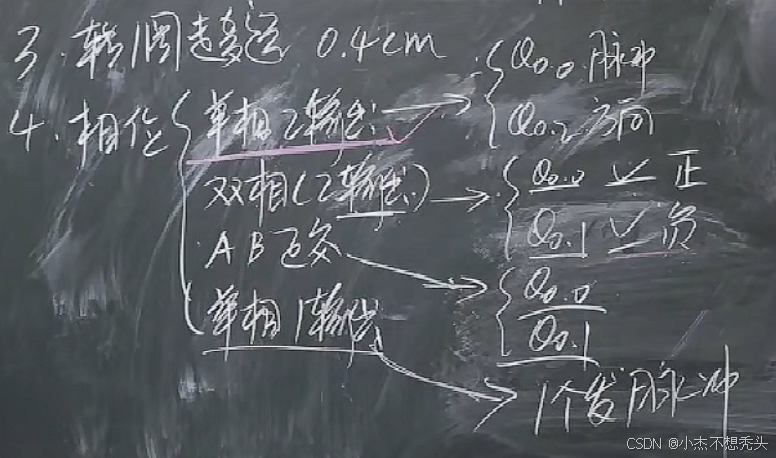 3. 转1圈走多远 0.4cm
4. 相位
单相2输出
Q0.0 脉冲
Q0.2 方向
双相(2输出)
Q0.0 正
Q0.1 负
AB正交
Q0.0
Q0.1
单相1输出
1个发脉冲
CSDN @小杰不想秃头